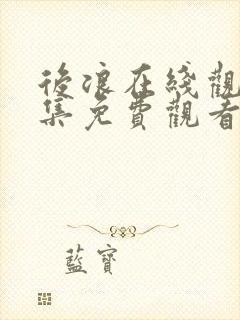 後浪在綫觀
集免費觀看
藍寶